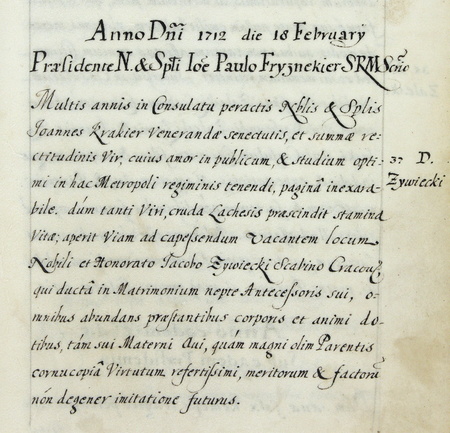 Anno Dn̄i 1712 die 18 February
Præsidente N. & Sptl̄i Ioē Paulo Fryznekier SRM Scr̄io
Multis annis in Consulatu peractis Nb̄lis & Spl̄is
Ioannes Krakier Venerandæ senectutis, et summæ re-
ctitudinis Vir, cuius amor in publicum, & studium opti-
mi in hac Metropoli regiminis tenendi, paginâ inexara-
bile. dúm tanti Viri, cruda Lachesis præscindit stamina
Vitæ; aperit Viam ad capessendum vacantem locum
Nobili et Honorato Iacobo Zywiecki Scabino Cracou:
qui ductâ in Matrimonium nepte Antecessoris sui, o-
mnibus abundans præstantibus corporis et animi do-
tibus, tám sui Materni Aui, quam magni olim Parentis
cornucopiâ Virtutum refertissimi, meritorum & factorū
nón degener imitatione futurus.
37 D.
Zywiecki